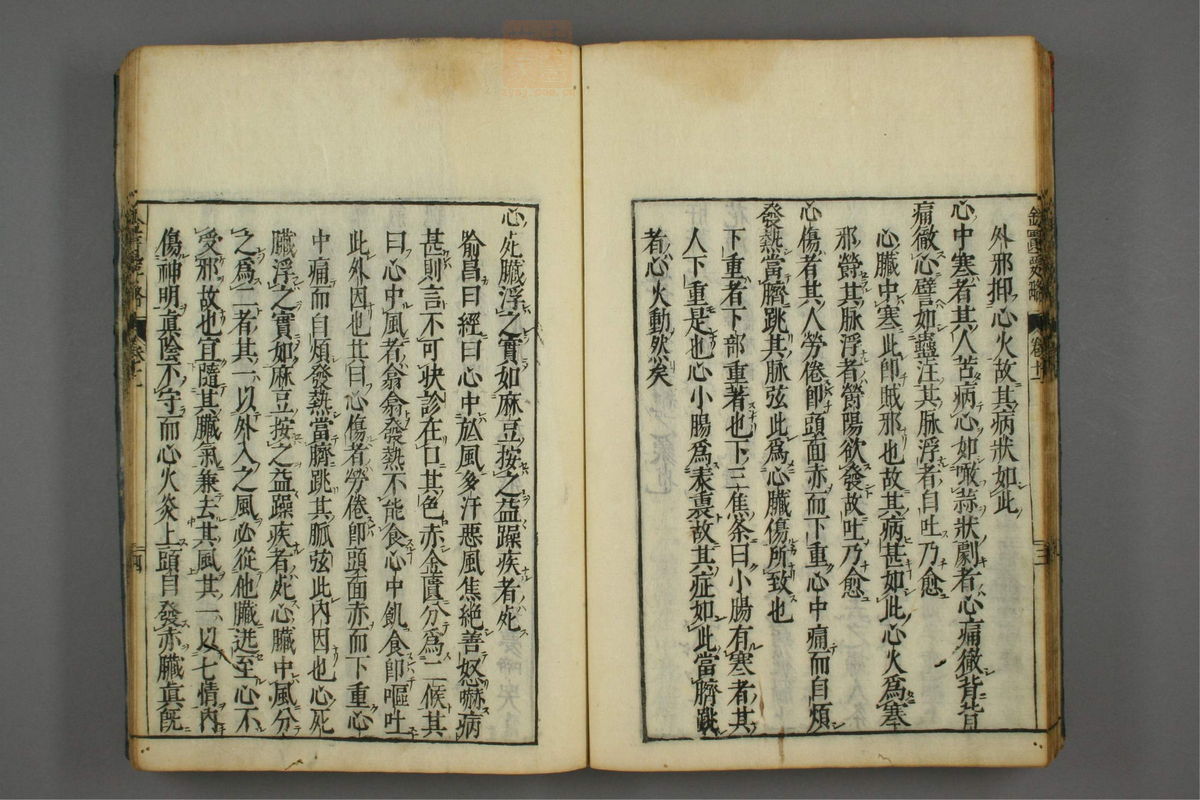 外邪抑心火故其病狀如此
心中寒者其人苦病心如噉蒜狀劇者心痛徹背背
痛徹心譬如蠱注其脉浮者自吐乃愈
心臟中寒此卽賊邪也故其病甚如此心火爲寒
邪欝其脉浮者欝陽欲發故吐乃愈
心傷者其人勞倦卽頭面赤而下重心中痛而自煩
發熱當臍跳其脉弦此爲心臟傷所致也
下重者下部重著也下三焦条曰小腸有寒者其
人下重是也心小腸爲表裏故其症如此當臍跳
者心火動然矣
心死臟浮之實如麻豆按之益躁疾者死
喻昌曰經曰心中於風多汗惡風焦絶善怒嚇病
甚則言不可快診在口其色赤金匱分爲二候其
曰心中風者翕翕發熱不能食心中飢食卽嘔吐
此外因也其曰心傷者勞倦卽頭面赤而下重心
中痛而自煩發熱當臍跳其脈弦此内因也心死
臟浮之實如麻豆按之益躁疾者死心臟中風分
之爲二者其一以外入之風必從他臟迸至心不
受邪故也宜隨其臟氣兼去其風其一以七情内
傷神明真陰不守而心火炎上頭自發赤臟真旣
卷
三
四